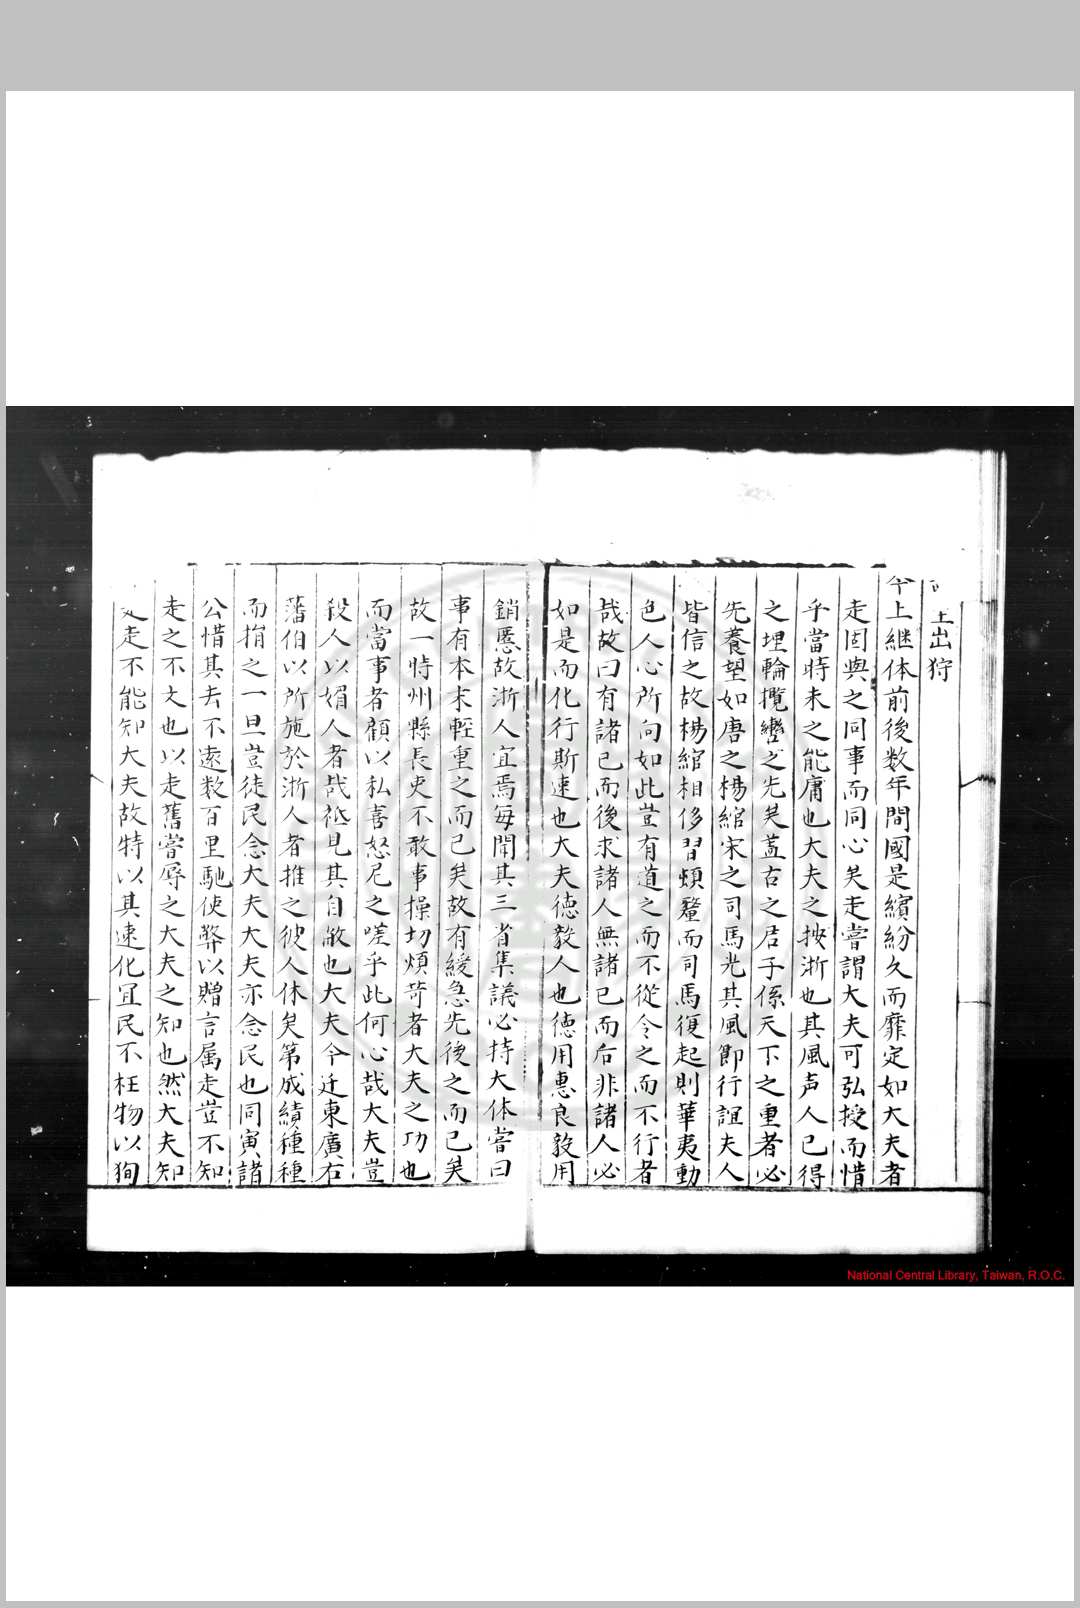 王出狩
今上継体前後数年間國是繽紛久而靡定如大夫者
走因與之同事而同心矣走嘗謂大夫可弘授而惜
乎當時未之能庸也大夫之按浙也其風声人已得
之埋輪攬轡之先矣盖古之君子係天下之重者必
先養望如唐之楊綰宋之司馬光其風節行誼夫人
皆信之故楊綰相侈習頓釐而司馬復起則華夷動
色人心所向如此豈有道之而不從令之而不行者
哉故曰有諸已而後求諸人無諸已而后非諸人必
如是而化行斯速也大夫德毅人也德用惠良毅用
銷慝故浙人宜焉每聞其三省集議必持大体嘗曰
事有本末輕重之而已矣故有緩急先後之而已矣
故一時州縣長吏不敢事操切煩苛者大夫之功也
而當事者顧以私喜怒尼之嗟乎此何心哉大夫豈
殺人以媚人者哉祗見其自敝也大夫今迁東廣右
藩伯以所施於浙人者推之彼人休矣第成績種種
而捐之一旦豈徒民念大夫大夫亦念民也同寅諸
公惜其去不遠数百里馳使幣以贈言属走豈不知
走之不文也以走舊嘗辱之大夫之知也然大夫知
走不能知大夫故特以其速化冝民不枉物以狥